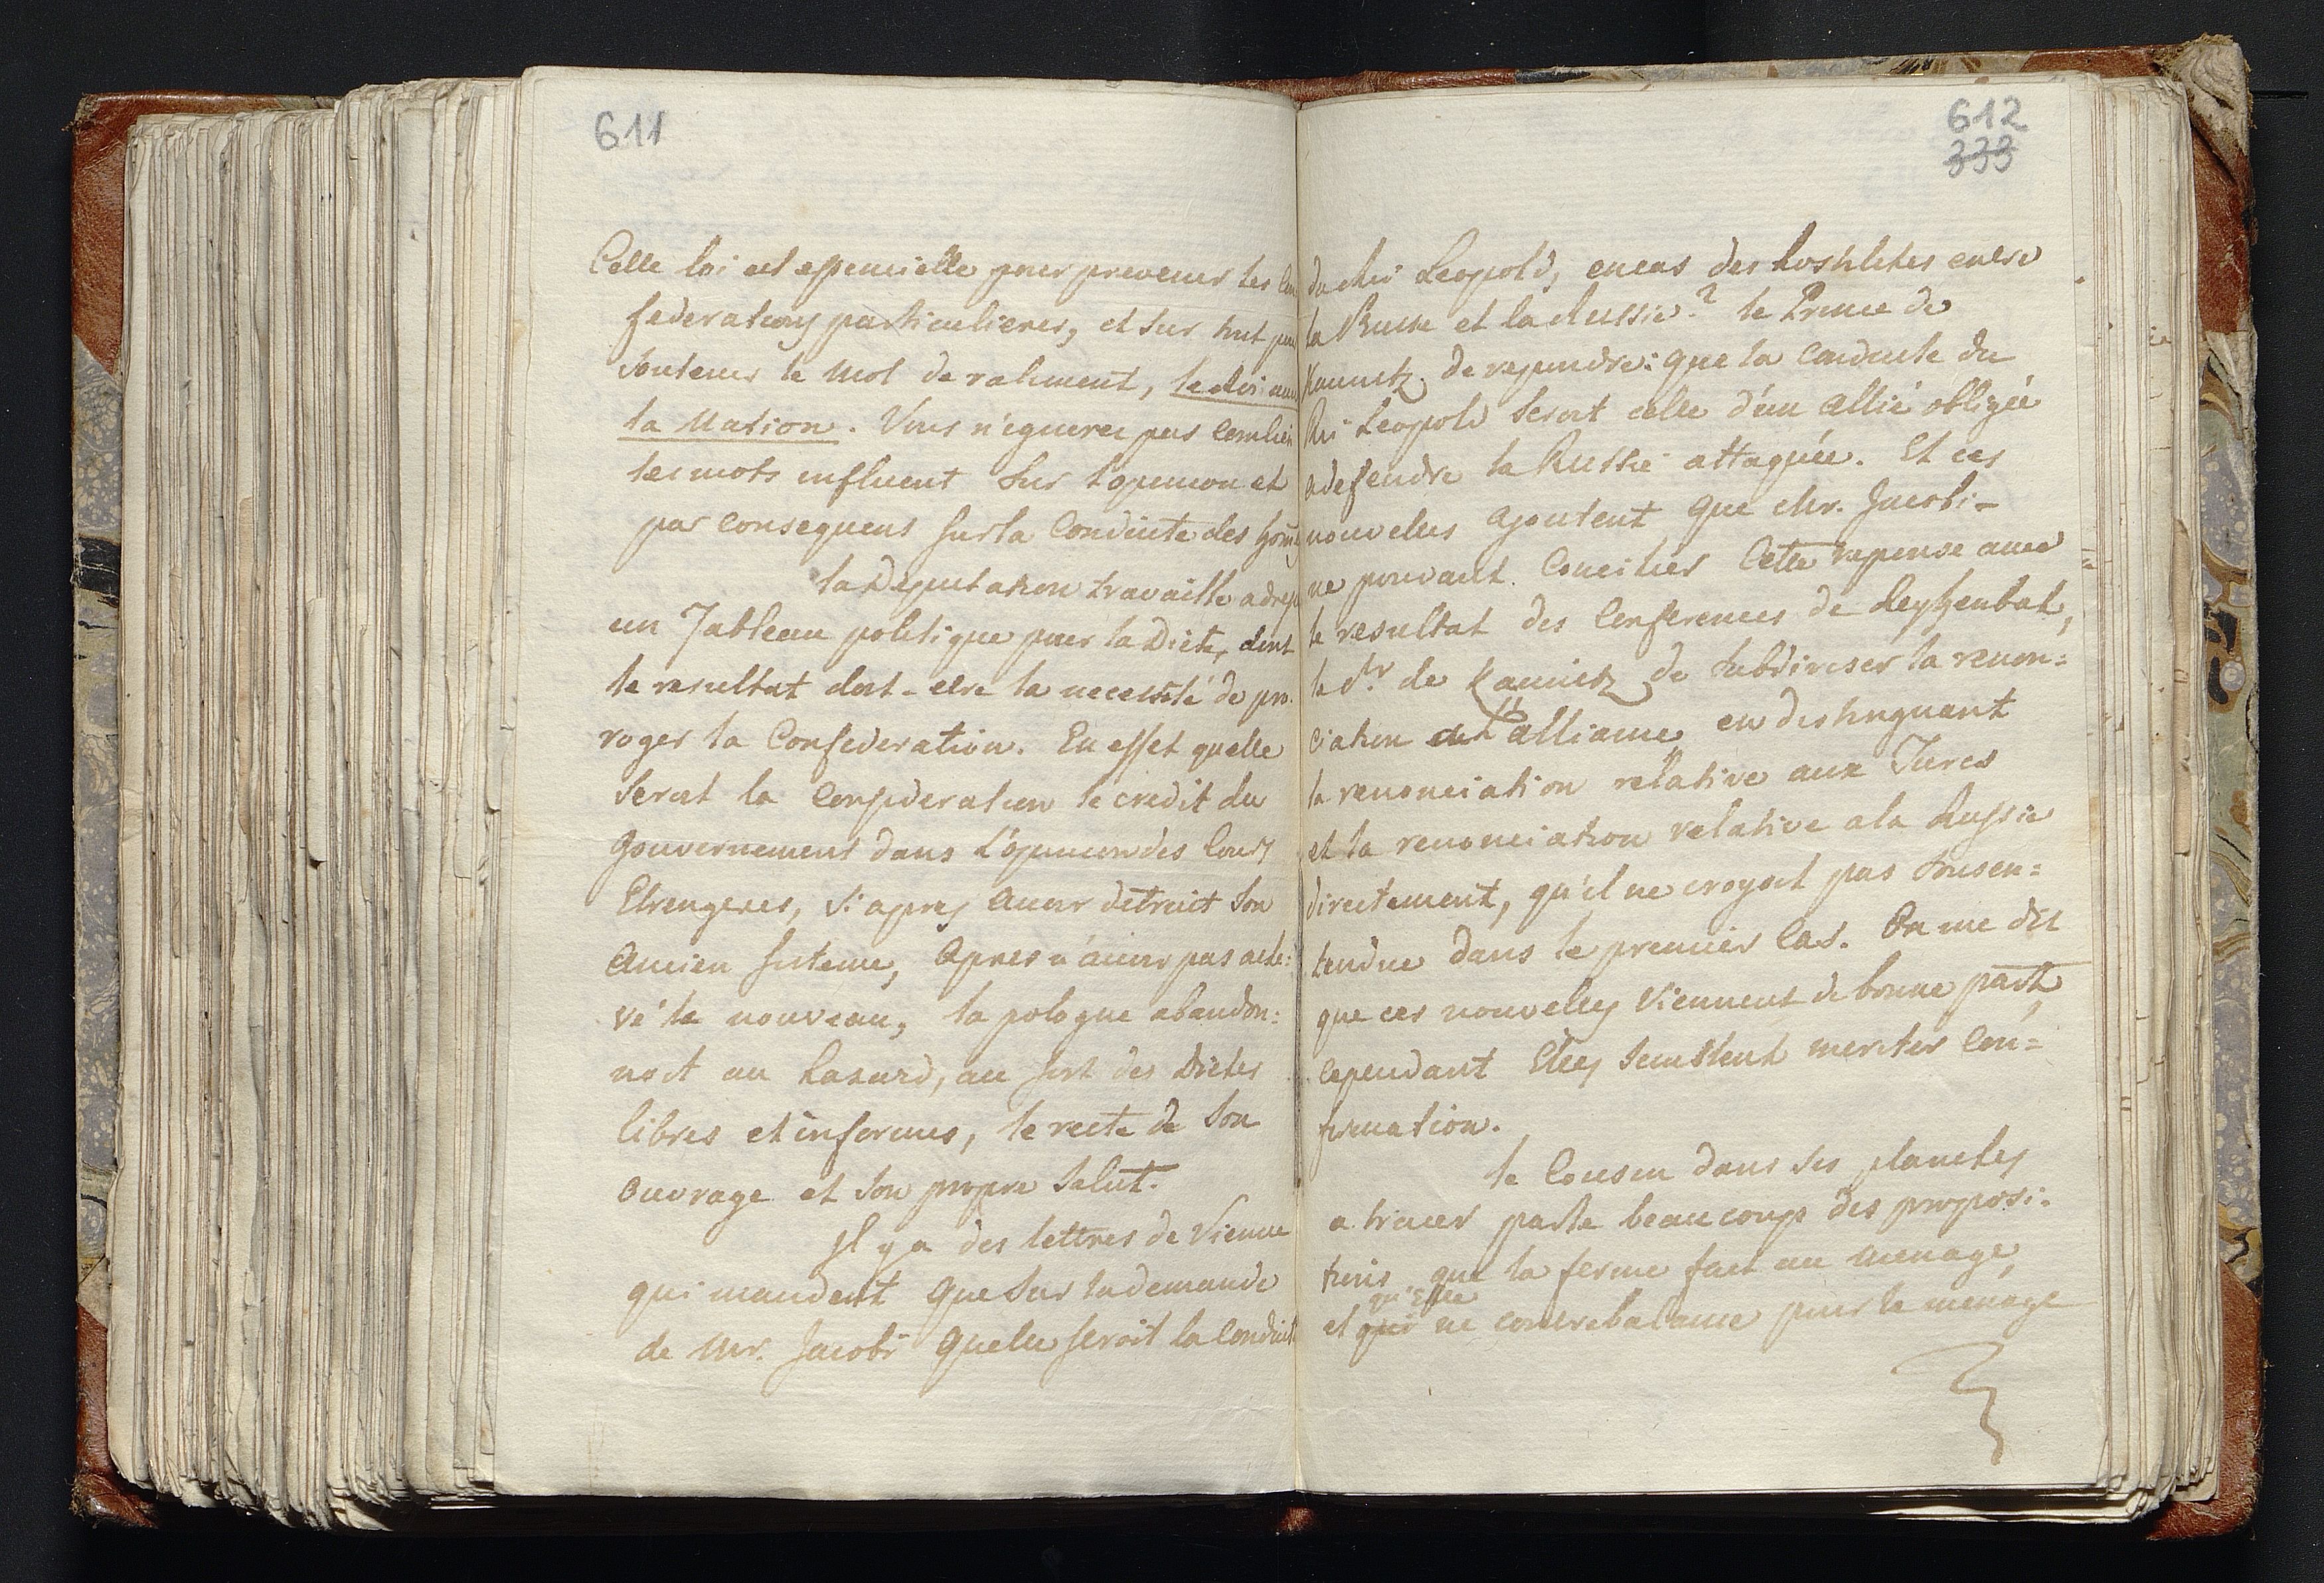 611
Cette loi est essencielle pour prevenir les Con
federations particulieres, et sur tout pour
soutenir le mot de raliment, le Roi avec
la Nation. Vous n'ignorez pas combien
les mots influent sur l'opinion et
par consequens sur la Conduite des hom̃es
la Deputation travaille a dresser
un Tableau politique pour la Diete, dont
le resultat doit-etre la necessité de pro-
roger la Confederation. En effet quelle
serait la consideration le credit du
gouvernement dans l'opinion des Cours
Etrengeres, si apres avoir detruit son
Ancien Sisteme, Apres n'avoir pas ache:
vé le nouveau, la pologne abandon:
noit au hazard, au sort des Dietes
libres et informes, le reste de son
ouvrage et son propre salut.
Il y a des lettres de Vienne
qui mandent que sur la demande
de Mr. Jacobi quelle seroit la Conduite
612
333
du Roi Leopold, en cas des hostilites entre
la Prusse et la Russie? le Prince de
Kaunitz de repondre: que la Conduite du
Roi Leopold seroit celle d'un allié obligée
a defendre la Russie attaquée. Et ces
nouvelles ajoutent que Mr. Jacobi-
ne pouvant Concilier Cette reponse avec
le resultat des Conferences de Reychenbach,
le Pr. de Kaunitz de subdiviser la renon:
ciation à L'alliance, en distinguant
la renonciation relative aux Turcs
et la renonciation relative a la Russie
directement, qu'il ne croyoit pas sousen:
tendue dans le premier Cas. On me dit
que ces nouvelles Viennent de bonne part,
cependant Elles semblent meriter Con:
firmation.
le Cousin dans ses planches
a tracer parle beaucoup des proposi:
tions que la ferme fait au menage,
et qui qu'Elle ne contrebalance pour le menage